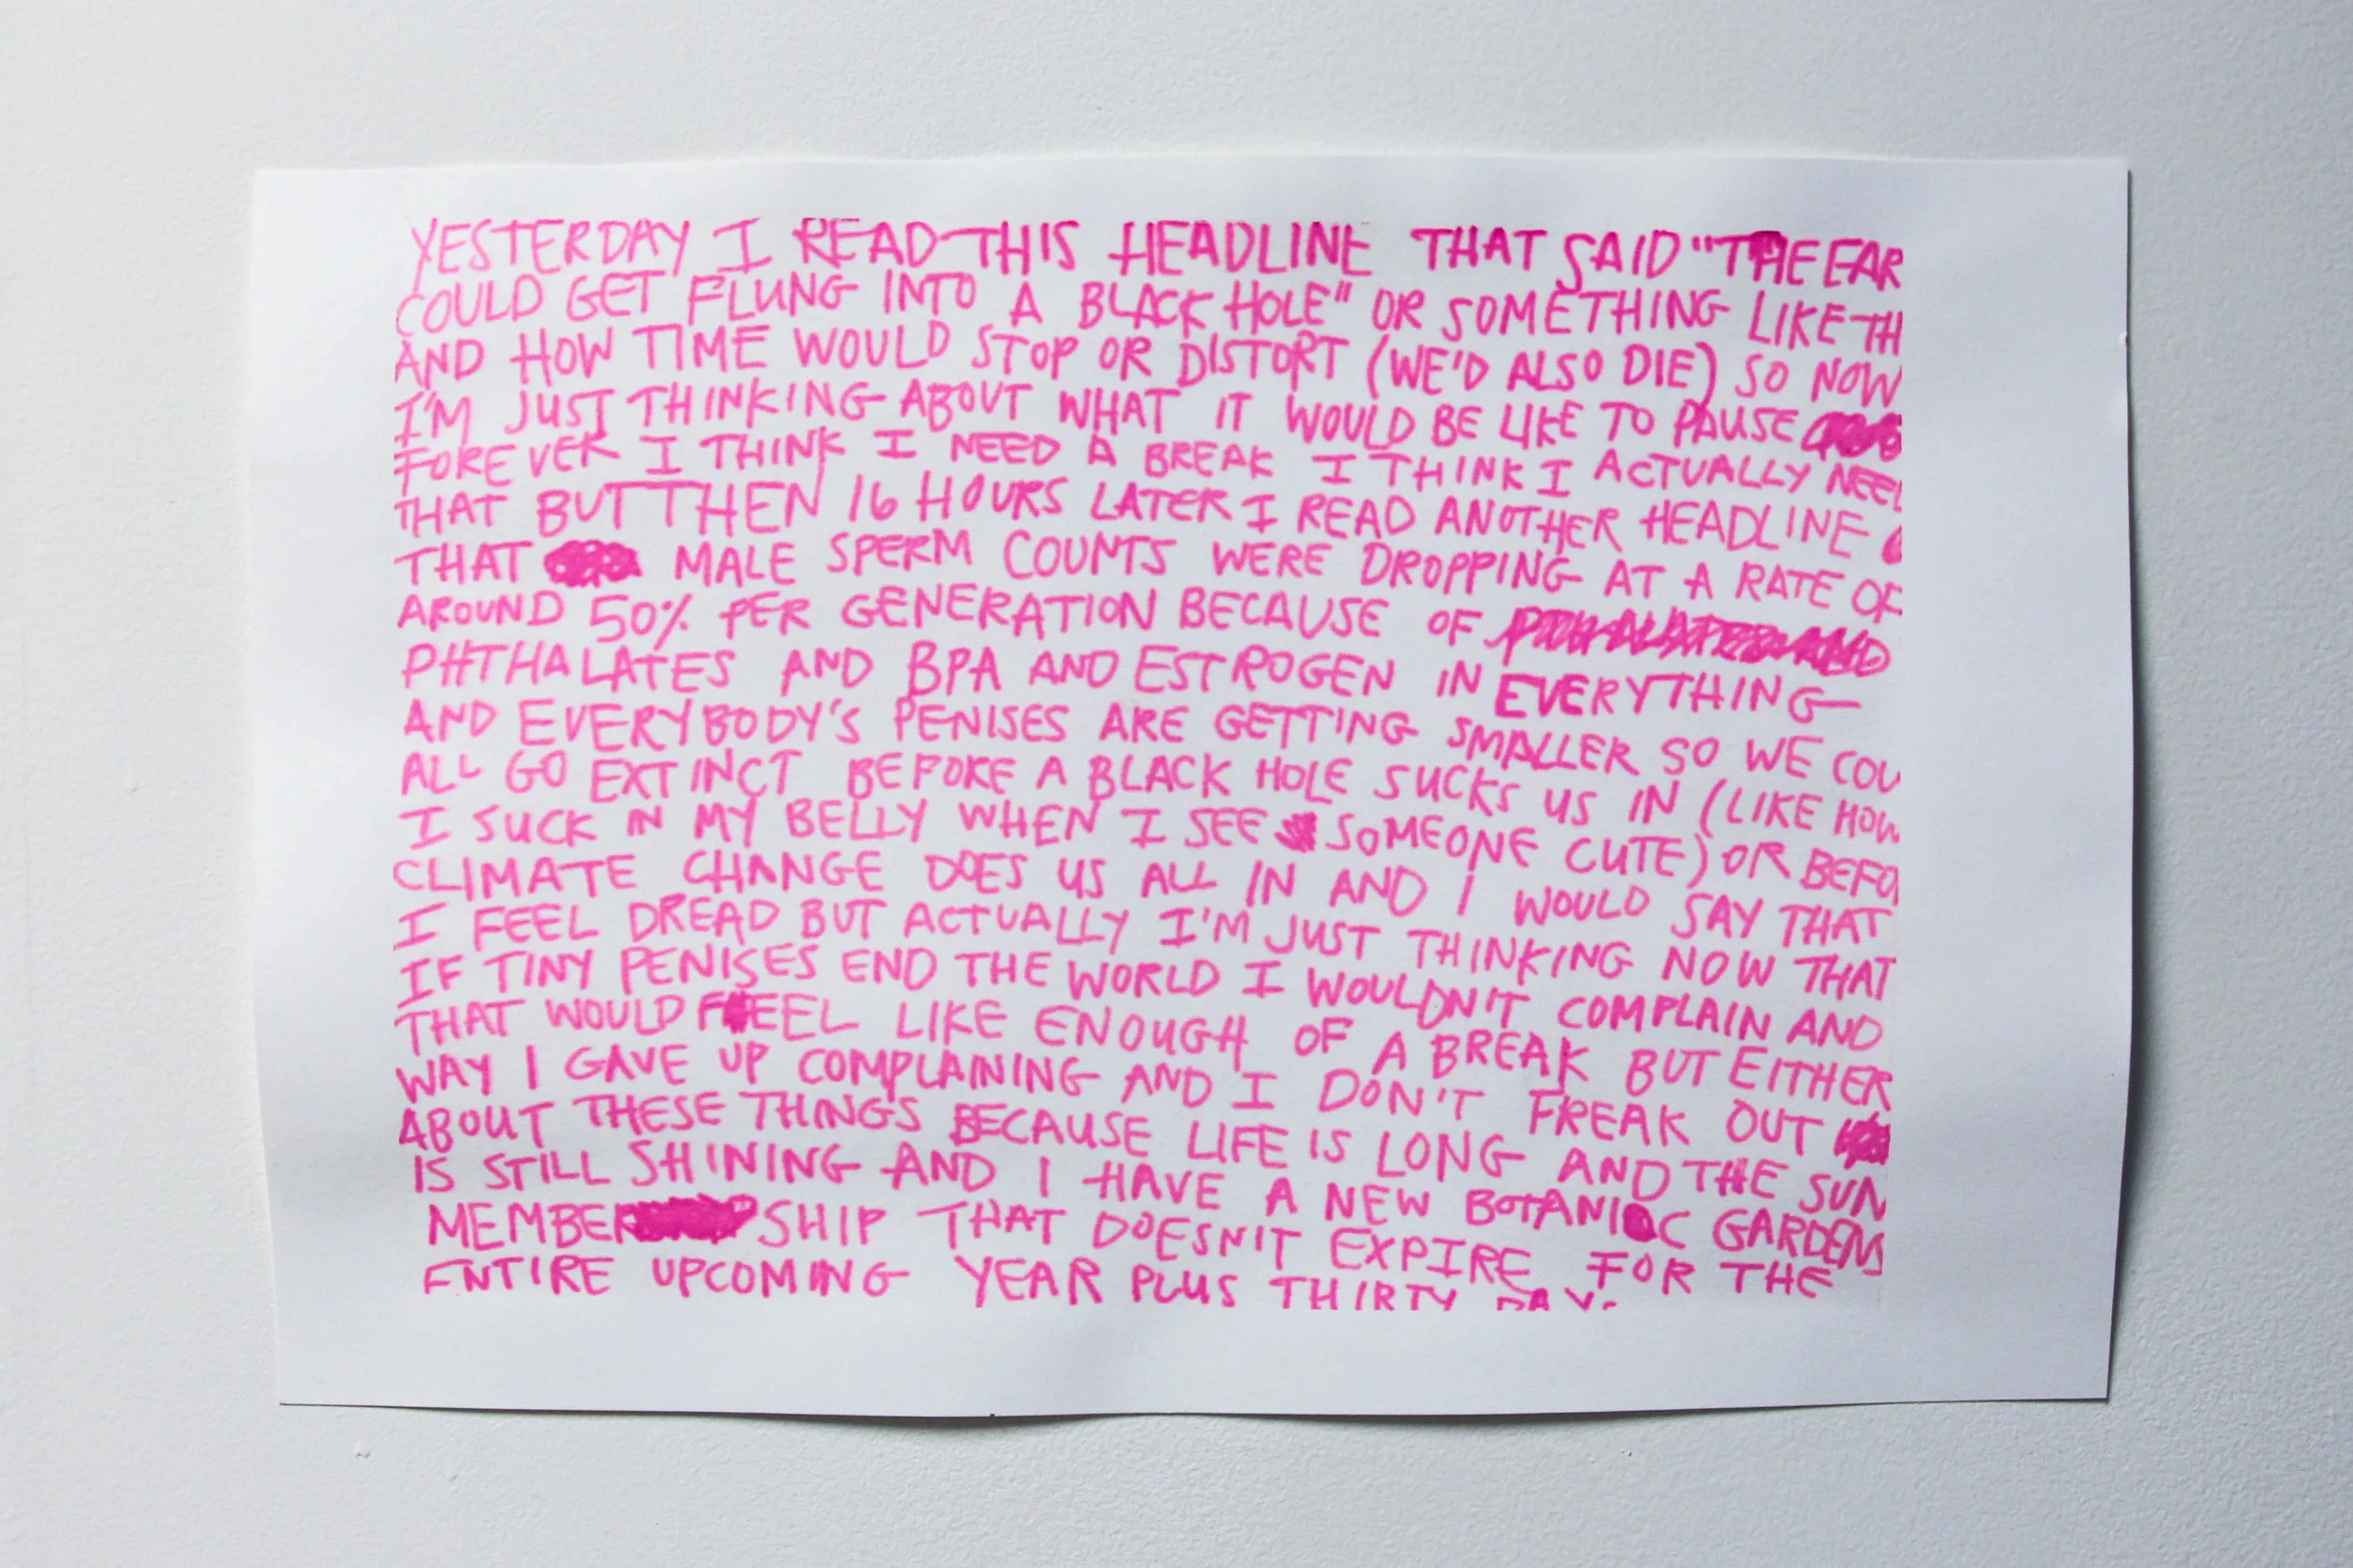 YESTERDAY I READ THIS HEADLINE THAT SAID "THE EAR
COULD GET FLUNG INTO A BLACK HOLE" OR SOMETHING LIKE TH
AND HOW TIME WOULD STOP OR DISTORT (WE'D ALSO DIE) SO NOW
I'M JUST THINKING ABOUT WHAT IT WOULD BE LIKE TO PAUSE
FOREVER I THINK I NEED A BREAK I THINK I ACTUALLY NEED
THAT BUT THEN 16 HOURS LATER I READ ANOTHER HEADLINE
THAT MALE SPERM COUNTS WERE DROPPING AT A RATE OF
AROUND 50% PER GENERATION BECAUSE OF
PHTHALATES AND BPA AND ESTROGEN IN EVERYTHING
AND EVERYBODY'S PENISES ARE GETTING SMALLER SO WE COU
ALL GO EXTINCT BEFORE A BLACK HOLE SUCKS US IN (LIKE HOW
I SUCK IN MY BELLY WHEN I SEE SOMEONE CUTE) OR BEFO
CLIMATE CHANGE DOES US ALL IN AND I WOULD SAY THAT
I FEEL DREAD BUT ACTUALLY I'M JUST THINKING NOW THAT
IF TINY PENISES END THE WORLD I WOULDN'T COMPLAIN AND
THAT WOULD FEEL LIKE ENOUGH OF A BREAK BUT EITHER
WAY I GAVE UP COMPLAINING AND I DON'T FREAK OUT
ABOUT THESE THINGS BECAUSE LIFE IS LONG AND THE SUN
IS STILL SHINING AND I HAVE A NEW BOTANIC GARDENS
MEMBERSHIP THAT DOESN'T EXPIRE FOR THE
ENTIRE UPCOMING YEAR PLUS THIRTY DAYS